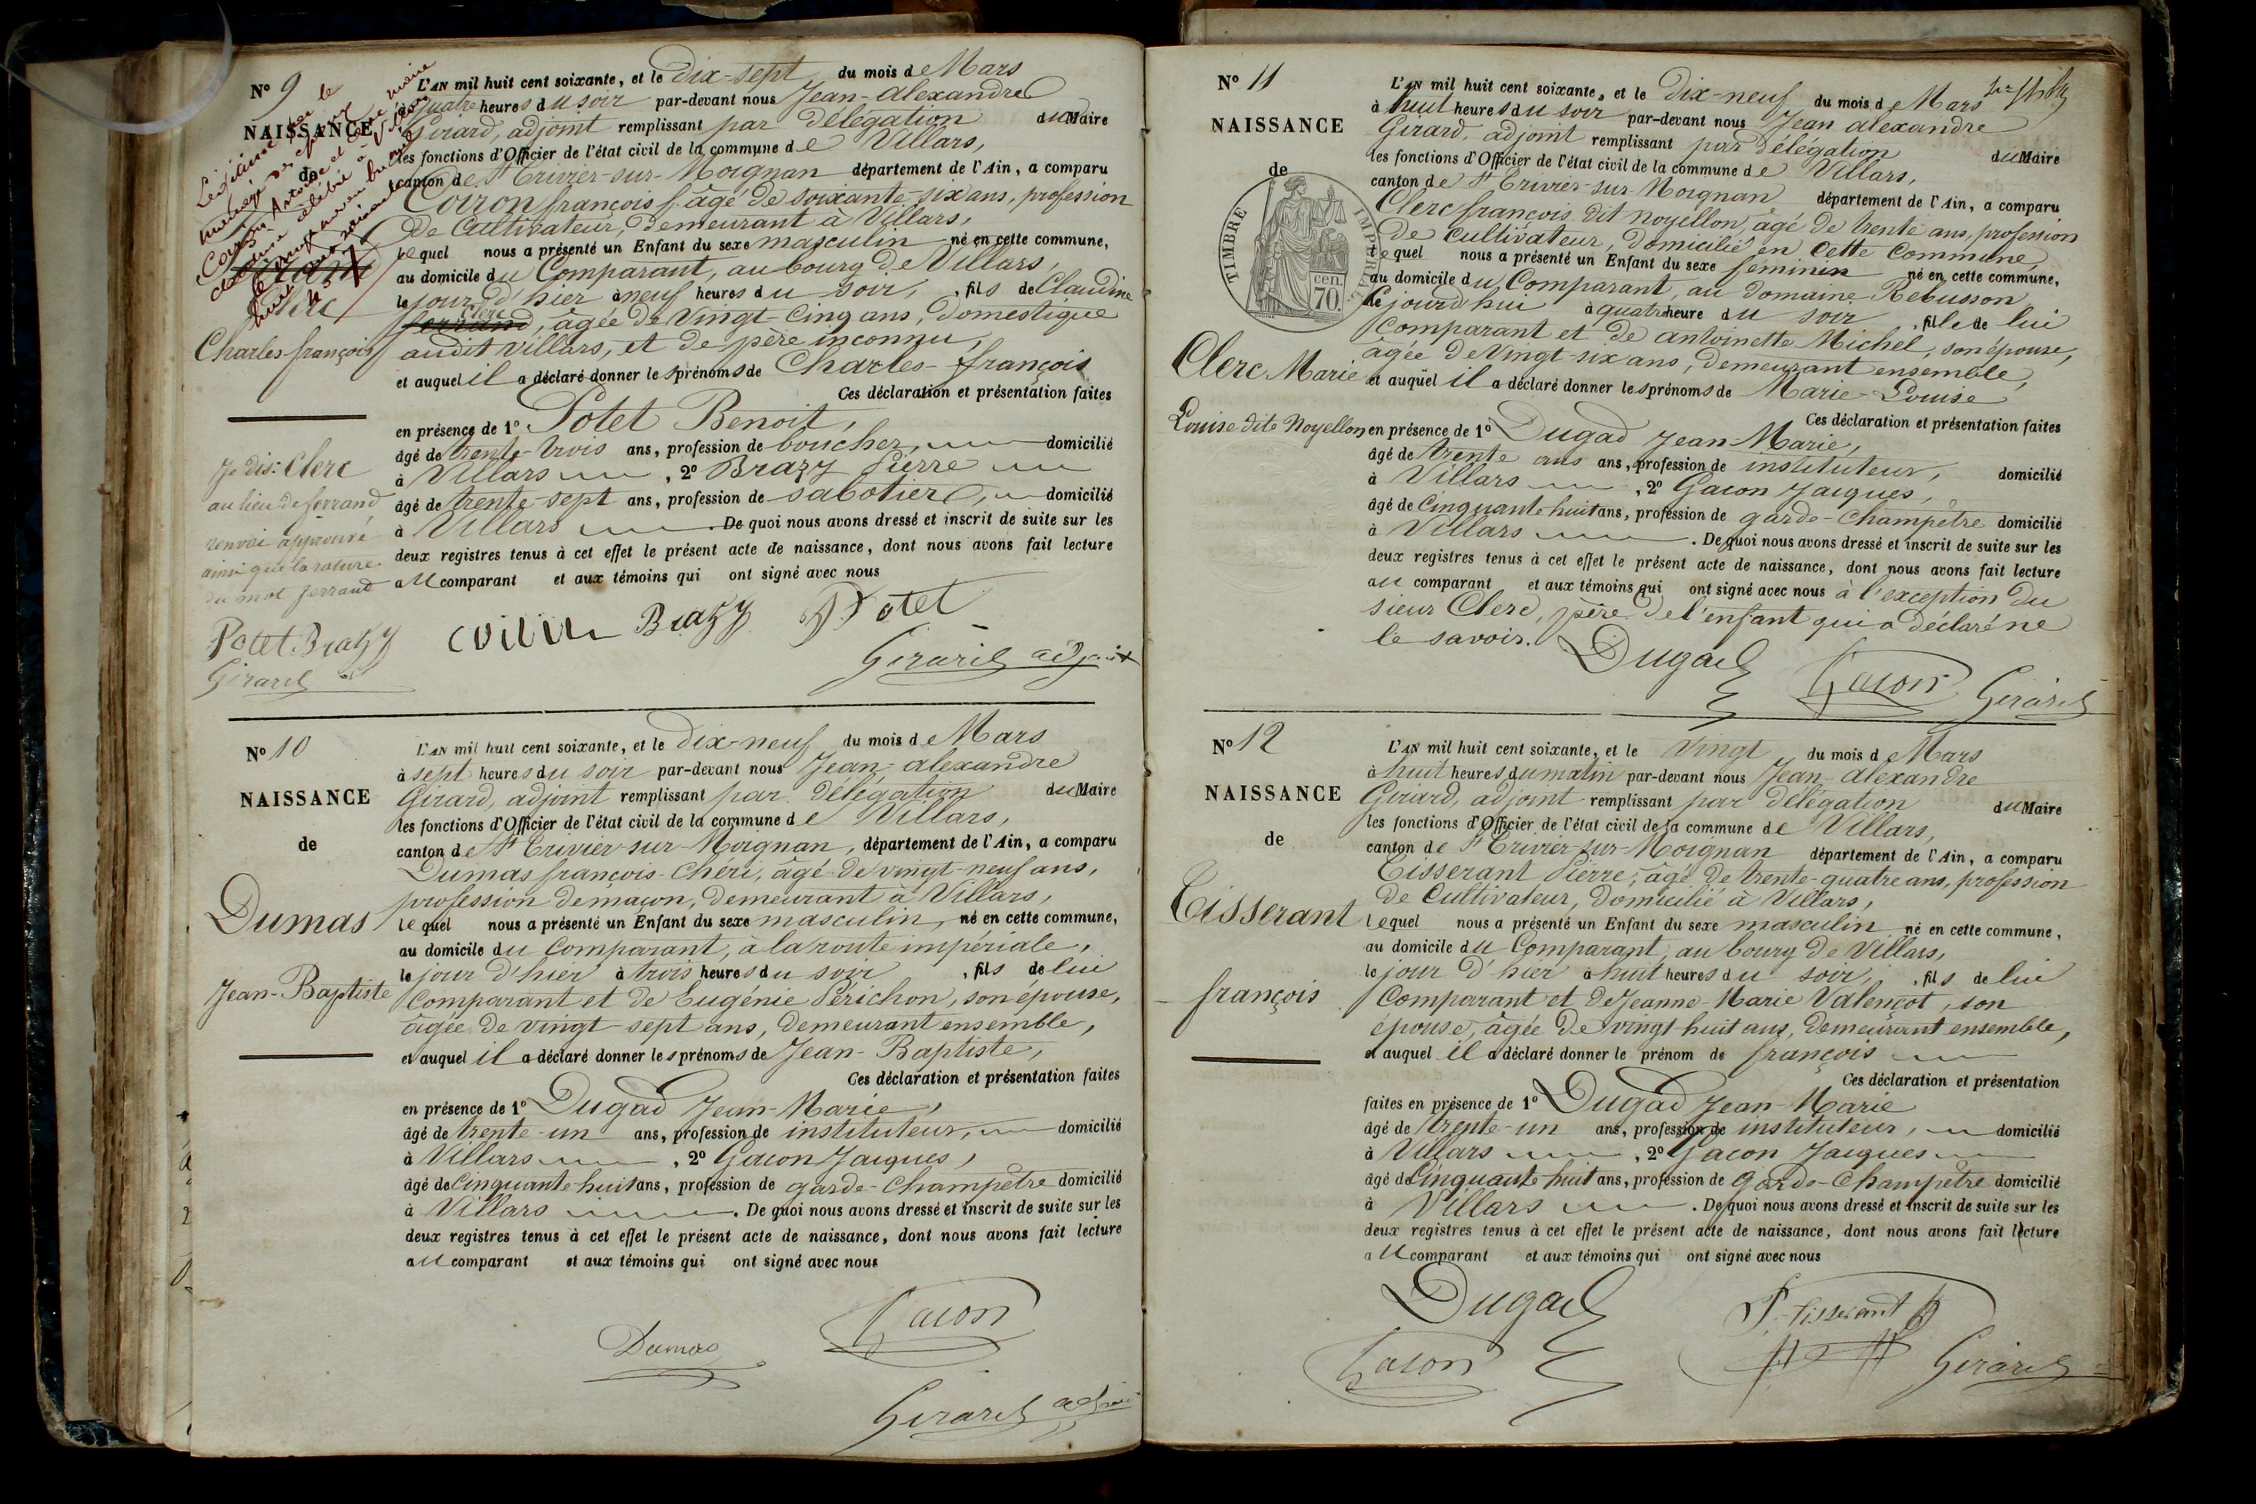 N° 9
NAISSANCE
de
Clerc
Charles françois
Je dis: Clerc
au lieu de ferrand
renvoi approuvé
ainsi que la rature
du mot ferrand
Potet Brazy
Girard
L'AN mil huit cent soixante, et le dix-sept du mois de Mars
à quatre heures du soir par-devant nous Jean-alexandre
Girard, adjoint remplissant par délégation du Maire
les fonctions d'Officier de l'état civil de la commune de Villars,
canton de St Trivier-sur-Moignan département de l'Ain, a comparu
Coiron françois âgé de soixante-six ans, profession
de Cultivateur, demeurant à Villars,
lequel nous a présenté un Enfant du sexe masculin né en cette commune,
au domicile du Comparant, au bourg de Villars,
le jour d'hier à neuf heures du soir, , fils de Claudine
Clerc
ferrand, âgée de Vingt-Cinq ans, domestique
audit villars, et de père inconnu,
et auquel il a déclaré donner les prénoms de Charles-françois
Ces déclaration et présentation faites
en présence de 1° Potet Benoit,
âgé de trente-trois ans, profession de boucher, domicilié
à Villars , 2° Brazy Pierre
âgé de trente-sept ans, profession de sabotier, domicilié
à Villars . De quoi nous avons dressé et inscrit de suite sur les
deux registres tenus à cet effet le présent acte de naissance, dont nous avons fait lecture
au comparant et aux témoins qui ont signé avec nous
Brazy Potet
Girard adjoint
N° 10
NAISSANCE
de
Dumas
Jean-Baptiste
L'AN mil huit cent soixante, et le dix-neuf du mois de Mars
à sept heures du soir par-devant nous Jean-alexandre
Girard, adjoint remplissant par délégation du Maire
les fonctions d'Officier de l'état civil de la commune de Villars,
canton de St Trivier-sur-Moignan, département de l'Ain, a comparu
Dumas françois-Chéri, âgé de vingt-neuf ans,
profession de maçon, demeurant à Villars,
lequel nous a présenté un Enfant du sexe masculin, né en cette commune,
au domicile du Comparant, à la route impériale,
le jour d'hier à trois heures du soir , fils de lui
Comparant et de Eugénie Périchon, son épouse,
âgée de vingt-sept ans, demeurant ensemble,
et auquel il a déclaré donner les prénoms de Jean-Baptiste,
Ces déclaration et présentation faites
en présence de 1° Dugad Jean-Marie,
âgé de trente-un ans, profession de instituteur, domicilié
à Villars , 2° Gacon Jacques,
âgé de Cinquante-huit ans, profession de garde-Champêtre domicilié
à Villars . De quoi nous avons dressé et inscrit de suite sur les
deux registres tenus à cet effet le présent acte de naissance, dont nous avons fait lecture
au comparant et aux témoins qui ont signé avec nous
Gacon
Dumas
Girard adjoint
N° 11
NAISSANCE
de
TIMBRE IMPÉRIAL
70 cen.
Clerc Marie
Louise dite Noyellon
L'AN mil huit cent soixante, et le dix-neuf du mois de Mars
à huit heures du soir par-devant nous Jean alexandre
Girard, adjoint remplissant par délégation du Maire
les fonctions d'Officier de l'état civil de la commune de Villars,
canton de St Trivier-sur-Moignan département de l'Ain, a comparu
Clerc françois dit noyellon, âgé de trente ans, profession
de cultivateur, domicilié en cette commune,
lequel nous a présenté un Enfant du sexe féminin né en cette commune,
au domicile du Comparant, au domaine Rebusson
le jourd'hui à quatre heure du soir , fille de lui
comparant et de antoinette Michel, son épouse,
âgée de Vingt-six ans, demeurant ensemble,
et auquel il a déclaré donner les prénoms de Marie-Louise
Ces déclaration et présentation faites
en présence de 1° Dugad Jean Marie,
âgé de trente ans ans, profession de instituteur, domicilié
à Villars , 2° Gacon Jacques,
âgé de Cinquante huit ans, profession de garde-Champêtre domicilié
à Villars . De quoi nous avons dressé et inscrit de suite sur les
deux registres tenus à cet effet le présent acte de naissance, dont nous avons fait lecture
au comparant et aux témoins qui ont signé avec nous à l'exception du
sieur Clerc, père de l'enfant qui a déclaré ne
le savoir.
Dugad Gacon Girard
N° 12
NAISSANCE
de
Tisserant
françois
L'AN mil huit cent soixante, et le Vingt du mois de Mars
à huit heures du matin par-devant nous Jean-Alexandre
Girard, adjoint remplissant par délégation du Maire
les fonctions d'Officier de l'état civil de la commune de Villars,
canton de St Trivier-sur-Moignan département de l'Ain, a comparu
Tisserant Pierre, âgé de trente-quatre ans, profession
de Cultivateur, domicilié à Villars,
lequel nous a présenté un Enfant du sexe masculin né en cette commune,
au domicile du Comparant, au bourg de Villars,
le jour d'hier à huit heures du soir, , fils de lui
Comparant et de Jeanne-Marie Valençot, son
épouse, âgée de vingt huit ans, demeurant ensemble,
et auquel il a déclaré donner le prénom de françois
Ces déclaration et présentation
faites en présence de 1° Dugad Jean-Marie
âgé de trente-un ans, profession de instituteur, domicilié
à Villars , 2° Gacon Jacques
âgé de Cinquante huit ans, profession de Garde-Champêtre domicilié
à Villars . De quoi nous avons dressé et inscrit de suite sur les
deux registres tenus à cet effet le présent acte de naissance, dont nous avons fait lecture
au comparant et aux témoins qui ont signé avec nous
Dugad P. Tisserant
Gacon Girard